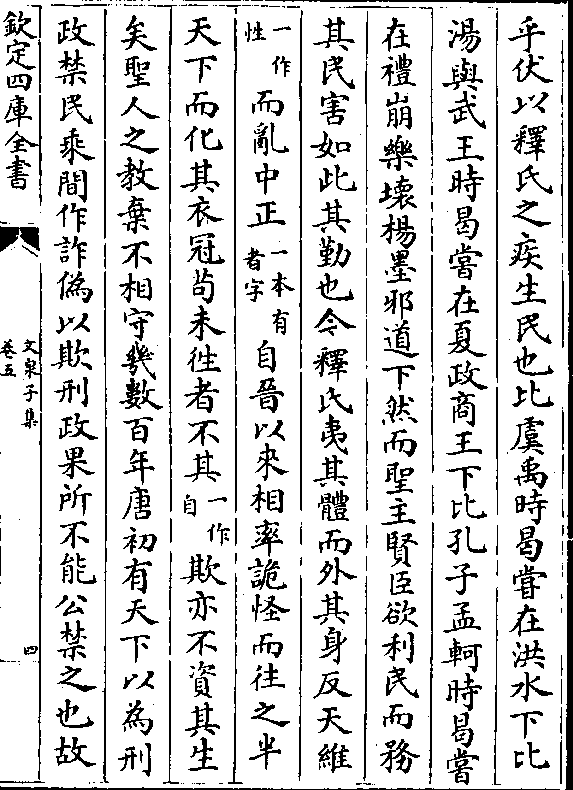 乎伏以釋氏之疾生民也比虞禹時曷嘗在洪水下比
湯與武王時曷嘗在夏政商王下比孔子孟軻時曷嘗
在禮崩樂壞楊墨邪道下然而聖主賢臣欲利民而務
其民害如此其勤也今釋氏夷其體而外其身反天維
一作性而亂中正一本有者字自晉以來相率詭怪而往之半
天下而化其衣冠苟未徃者不其一作自欺亦不資其生
矣聖人之教棄不相守幾數百年唐初有天下以為刑
政禁民乘間作詐偽以欺刑政果所不能公禁之也故
欽定四庫全書
文泉子集
卷五
四